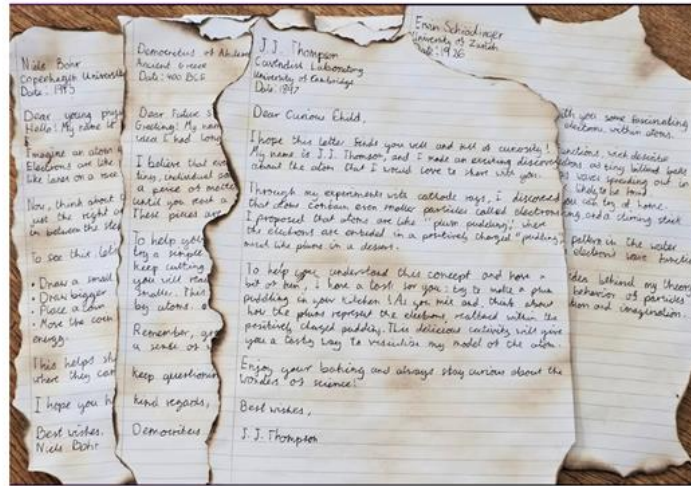 Niels Bohr
Copenhagen Universi
Date: 1913
Dear young phys
Hello! My name is
Imagine an atom
Electrons are like
like lanes on a race
Now, think about
just the right
in between the ste
To see this
• Draw a small
• Draw bigger
• Place a coin
• Move the coin
energy.
This helps sh
where they can
I hope you h
Best wishes.
Niels Bohr
Democritus of Abdera
Ancient Greece
Date: 400 BCE
Dear Future S
Greeting! My nam
idea I had long
I believe that eve
tiny, individual
a peice of matter
until you reach a
These pieces are
To help you
try a simple
keep cutting
you will rea
smaller. This
big atoms.
Remember,
a sense of
keep questioning
kind regards,
Democritus
J.J. Thompson
Cavendish Laboratory
University of Cambridge
Date: 1897
Dear Curious Child,
I hope this letter finds you well and full of curiosity!
My name is J.J. Thomson, and I made an exciting discovery
about the atom that I would love to share with you.
Through my experiments with cathode rays, I discovered
that atoms contain even smaller particles called electrons
I proposed that atoms are like "plum pudding", where
the electrons are embedded in a positively charged "pudding"
much like plums in a dessert.
To help you understand this concept and have a
bit of fun, I have a task for you: try to make a plum
pudding in your kitchen! As you mix and, think about
how the plums represent the electrons scattered within the
positively charged pudding. This delicious activity will give
you a tasty way to visualise my model of the atom.
Enjoy your baking and always stay curious about the
wonders of science!
Best wishes,
J.J. Thompson
Erwin Schrödinger
University of Zurich
Date: 1926
with you some fascinating
electrons within atoms.
functions, which describe
as tiny billiard balls
as waves spreading out in
likely to be found.
you can try at home.
and a stirring stick
pattern in the water
electrons' wave functio
idea behind my theory
behavior of particles
and imagination.